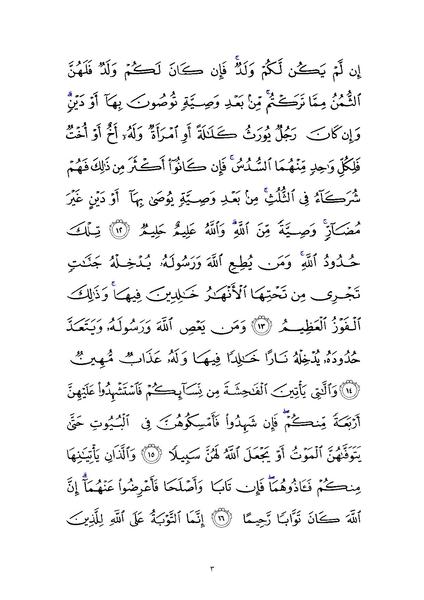 إِن لَّمْ يَكُن لَّكُمْ وَلَدٌۚ فَإِن كَانَ لَكُمْ وَلَدٌ فَلَهُنَّ
ٱلثُّمُنُ مِمَّا تَرَكْتُمۚ مِّنۢ بَعْدِ وَصِيَّةٍ تُوصُونَ بِهَآ أَوْ دَيْنٍۗ
وَإِن كَانَ رَجُلٌ يُورَثُ كَلَٰلَةً أَوِ ٱمْرَأَةٌ وَلَهُۥٓ أَخٌ أَوْ أُخْتٌ
فَلِكُلِّ وَٰحِدٍ مِّنْهُمَا ٱلسُّدُسُۚ فَإِن كَانُوٓا۟ أَكْثَرَ مِن ذَٰلِكَ فَهُمْ
شُرَكَآءُ فِى ٱلثُّلُثِۚ مِنۢ بَعْدِ وَصِيَّةٍ يُوصَىٰ بِهَآ أَوْ دَيْنٍ غَيْرَ
مُضَآرٍّۚ وَصِيَّةً مِّنَ ٱللَّهِۗ وَٱللَّهُ عَلِيمٌ حَلِيمٌ ١٢ تِلْكَ
حُدُودُ ٱللَّهِۚ وَمَن يُطِعِ ٱللَّهَ وَرَسُولَهُۥ يُدْخِلْهُ جَنَّٰتٍ
تَجْرِى مِن تَحْتِهَا ٱلْأَنْهَٰرُ خَٰلِدِينَ فِيهَاۚ وَذَٰلِكَ
ٱلْفَوْزُ ٱلْعَظِيمُ ١٣ وَمَن يَعْصِ ٱللَّهَ وَرَسُولَهُۥ وَيَتَعَدَّ
حُدُودَهُۥ يُدْخِلْهُ نَارًا خَٰلِدًا فِيهَا وَلَهُۥ عَذَابٌ مُّهِينٌ
١٤ وَٱلَّٰتِى يَأْتِينَ ٱلْفَٰحِشَةَ مِن نِّسَآئِكُمْ فَٱسْتَشْهِدُوا۟ عَلَيْهِنَّ
أَرْبَعَةً مِّنكُمْۖ فَإِن شَهِدُوا۟ فَأَمْسِكُوهُنَّ فِى ٱلْبُيُوتِ حَتَّىٰ
يَتَوَفَّىٰهُنَّ ٱلْمَوْتُ أَوْ يَجْعَلَ ٱللَّهُ لَهُنَّ سَبِيلًا ١٥ وَٱلَّذَانِ يَأْتِيَٰنِهَا
مِنكُمْ فَـَٔاذُوهُمَاۖ فَإِن تَابَا وَأَصْلَحَا فَأَعْرِضُوا۟ عَنْهُمَآۗ إِنَّ
ٱللَّهَ كَانَ تَوَّابًا رَّحِيمًا ١٦ إِنَّمَا ٱلتَّوْبَةُ عَلَى ٱللَّهِ لِلَّذِينَ
٣